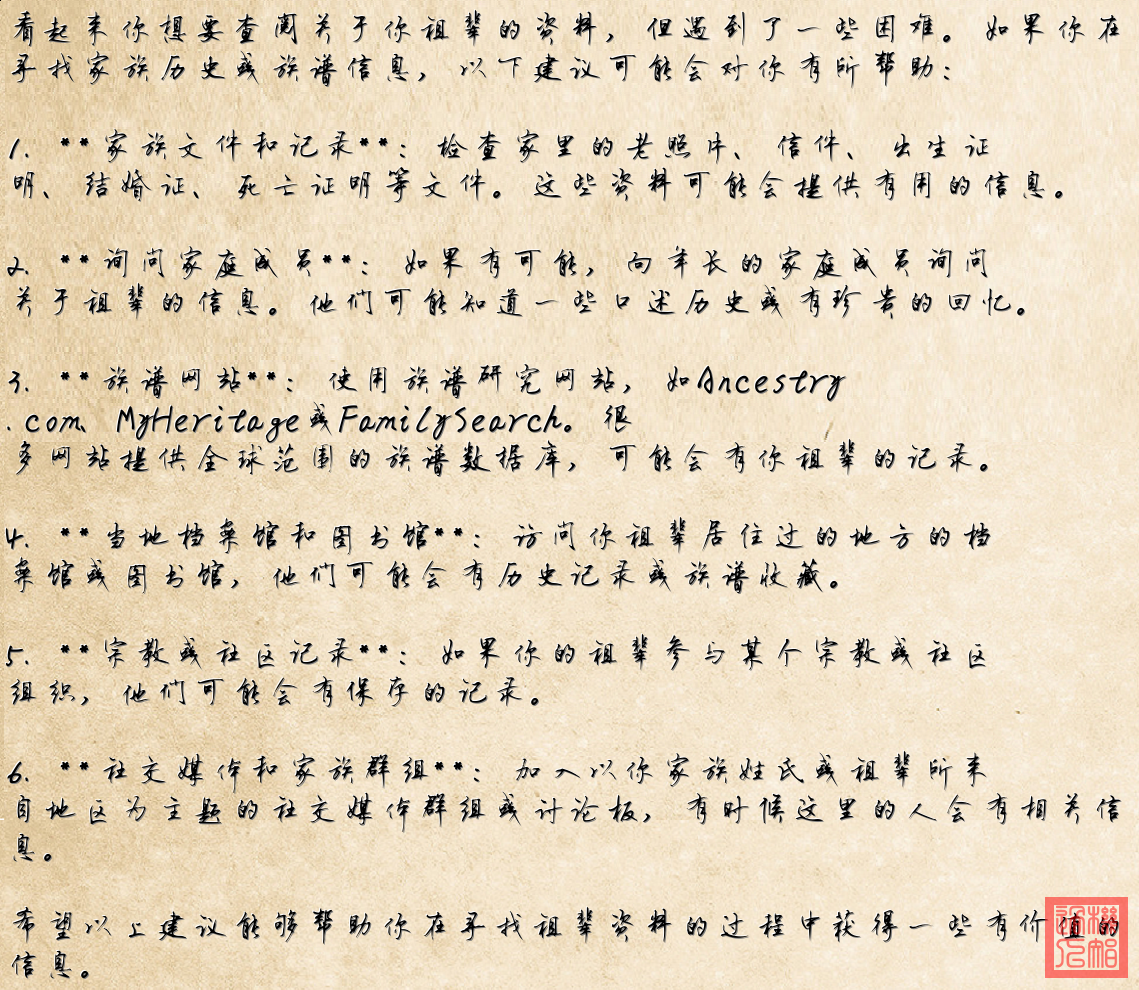 看起来你想要查阅关于你祖辈的资料，但遇到了一些困难。如果你在
寻找家族历史或族谱信息，以下建议可能会对你有所帮助：
1. **家族文件和记录**：检查家里的老照片、信件、出生证
明、结婚证、死亡证明等文件。这些资料可能会提供有用的信息。
2. **询问家庭成员**：如果有可能，向年长的家庭成员询问
关于祖辈的信息。他们可能知道一些口述历史或有珍贵的回忆。
3. **族谱网站**：使用族谱研究网站，如Ancestry
.com、MyHeritage或FamilySearch。很
多网站提供全球范围的族谱数据库，可能会有你祖辈的记录。
4. **当地档案馆和图书馆**：访问你祖辈居住过的地方的档
案馆或图书馆，他们可能会有历史记录或族谱收藏。
5. **宗教或社区记录**：如果你的祖辈参与某个宗教或社区
组织，他们可能会有保存的记录。
6. **社交媒体和家族群组**：加入以你家族姓氏或祖辈所来
自地区为主题的社交媒体群组或讨论板，有时候这里的人会有相关信
息。
希望以上建议能够帮助你在寻找祖辈资料的过程中获得一些有价值的
信息。